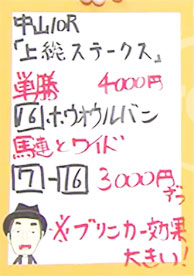 中山10R
「上総ステークス」
単勝 4000円
16 ホウオウルバン
馬連とワイド
7-16 3000円
ずつ
※ブリンカー効果
大きい!